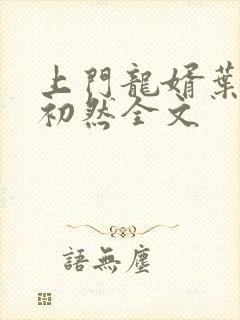 上門龍婿葉
初然全文
語無塵